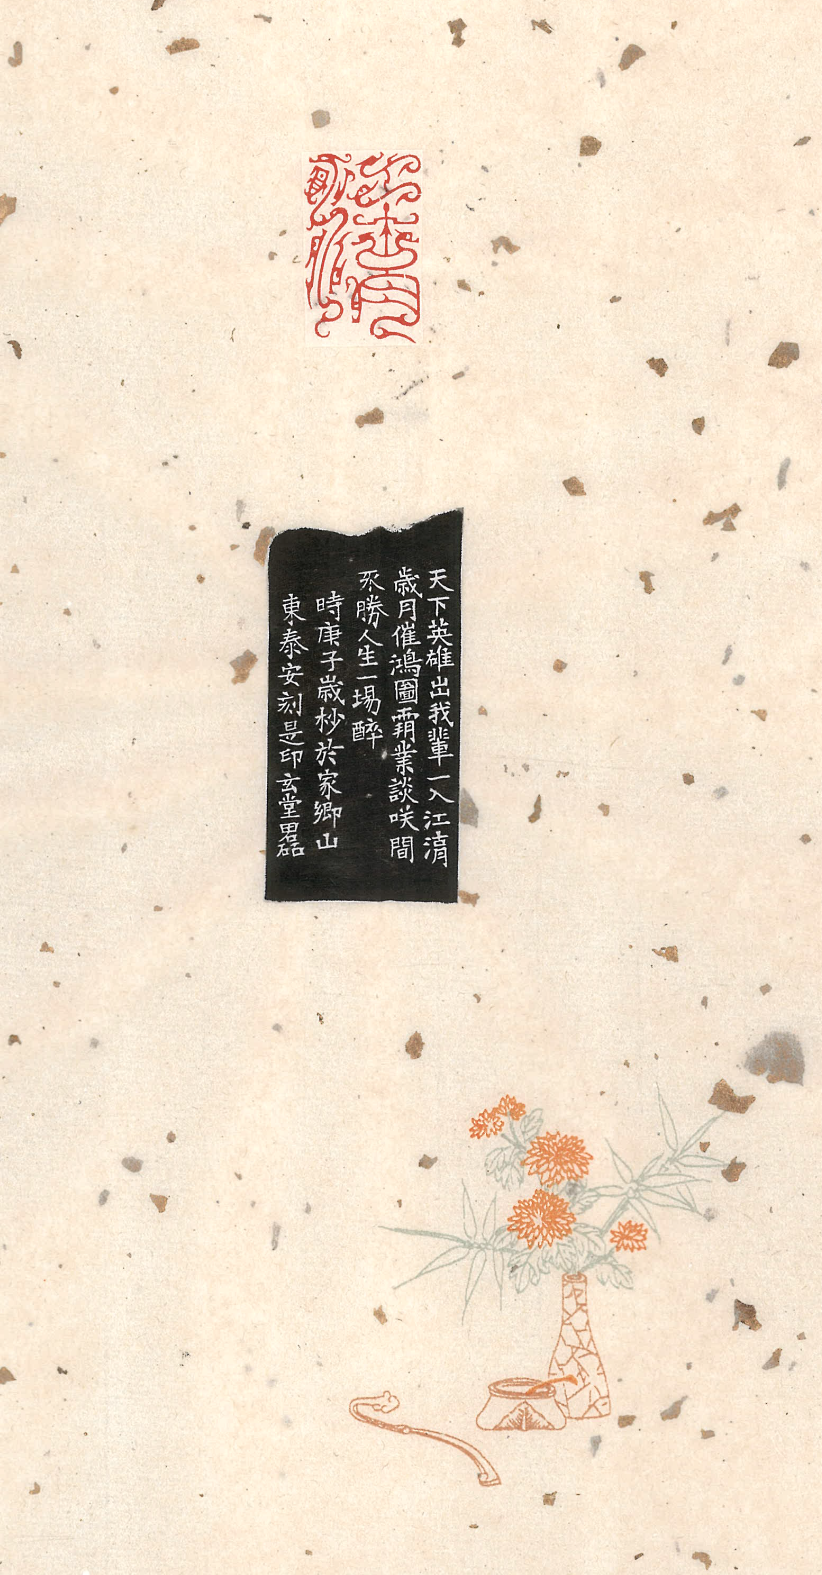 天下英雄出我輩一入江湏
歲月催鴻圖霸業談咲間
不勝人生一場醉
時庚子歲杪於家鄉山
東泰安刻是印玄堂畧磊